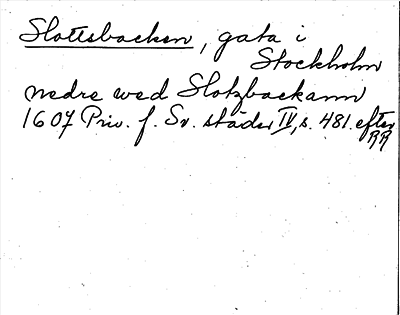 Slottsbacken, gata i
Stockholm
nedre wed Slotzbackann
1607 Priv. f. Sv. städer IV, s. 481. efter
RR